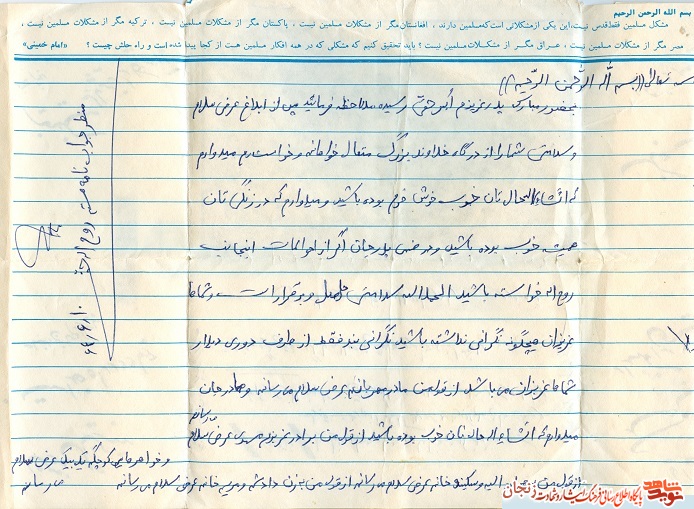 بسم الله الرحمن الرحیم
مشکل مسلمین فقط قدس نیست، این یکی از مشکلاتی است که مسلمین دارند، افغانستان مگر از مشکلات مسلمین نیست، پاکستان مگر از مشکلات مسلمین نیست، ترکیه مگر از مشکلات مسلمین نیست،
مصر مگر از مشکلات مسلمین نیست، عراق مگر از مشکلات مسلمین نیست؟ باید تحقیق کنیم که مشکلی که در همه افکار مسلمین هست از کجا پیدا شده است و راه حلش چیست؟ «امام خمینی»
((بسم الله الرحمن الرحیم))
بحضور مبارک پدر عزیزم رسیده ملاحظه فرمائید پس از ابلاغ عرض سلام
و سلامتی شما را از درگاه خداوند بزرگ متعال خواهانم و خواستارم امیدوارم
که انشاءالله حال تان خوب خوش خرم بوده باشید و امیدوارم که در زندگی تان
همیشه خوب بوده باشید و در ضمن پدر جان اگر از احوالات اینجانب
روح اله خواسته باشید الحمدالله سلامتی حاصل و برقرار است و شما
عزیزان هیچگونه نگرانی نداشته باشید نگرانی بنده فقط از طرف دوری دیدار
شما عزیزان می باشد از قول من مادر مهربانم عرض سلام می رسانم و مادر جان
امیدوارم که انشاءالله حال تان خوب بوده باشید از قول من برادر عزیزم مهدی عرض سلام
می رسانم
از قول من و سکینه خانم عرض سلام می رسانم از قول من به زن داداشم و مریم خانم عرض سلام می رسانم
و خواهرهای کوچکم یک یک عرض سلام
می رسانم
منتظر جواب نامه هستم روح اله
۶۴/۶/۱۰
نوید شاهد
پایگاه اطلاع رسانی فرهنگ ایثار و شهادت زنجان